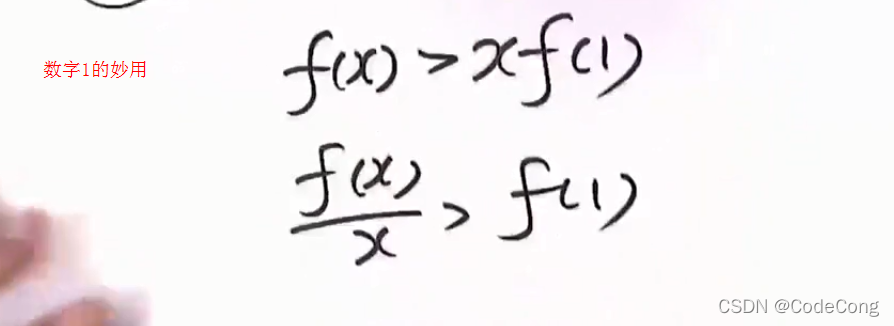 数字1的妙用
f(x) > xf(1)
f(x)/x > f(1)
CSDN @CodeCong